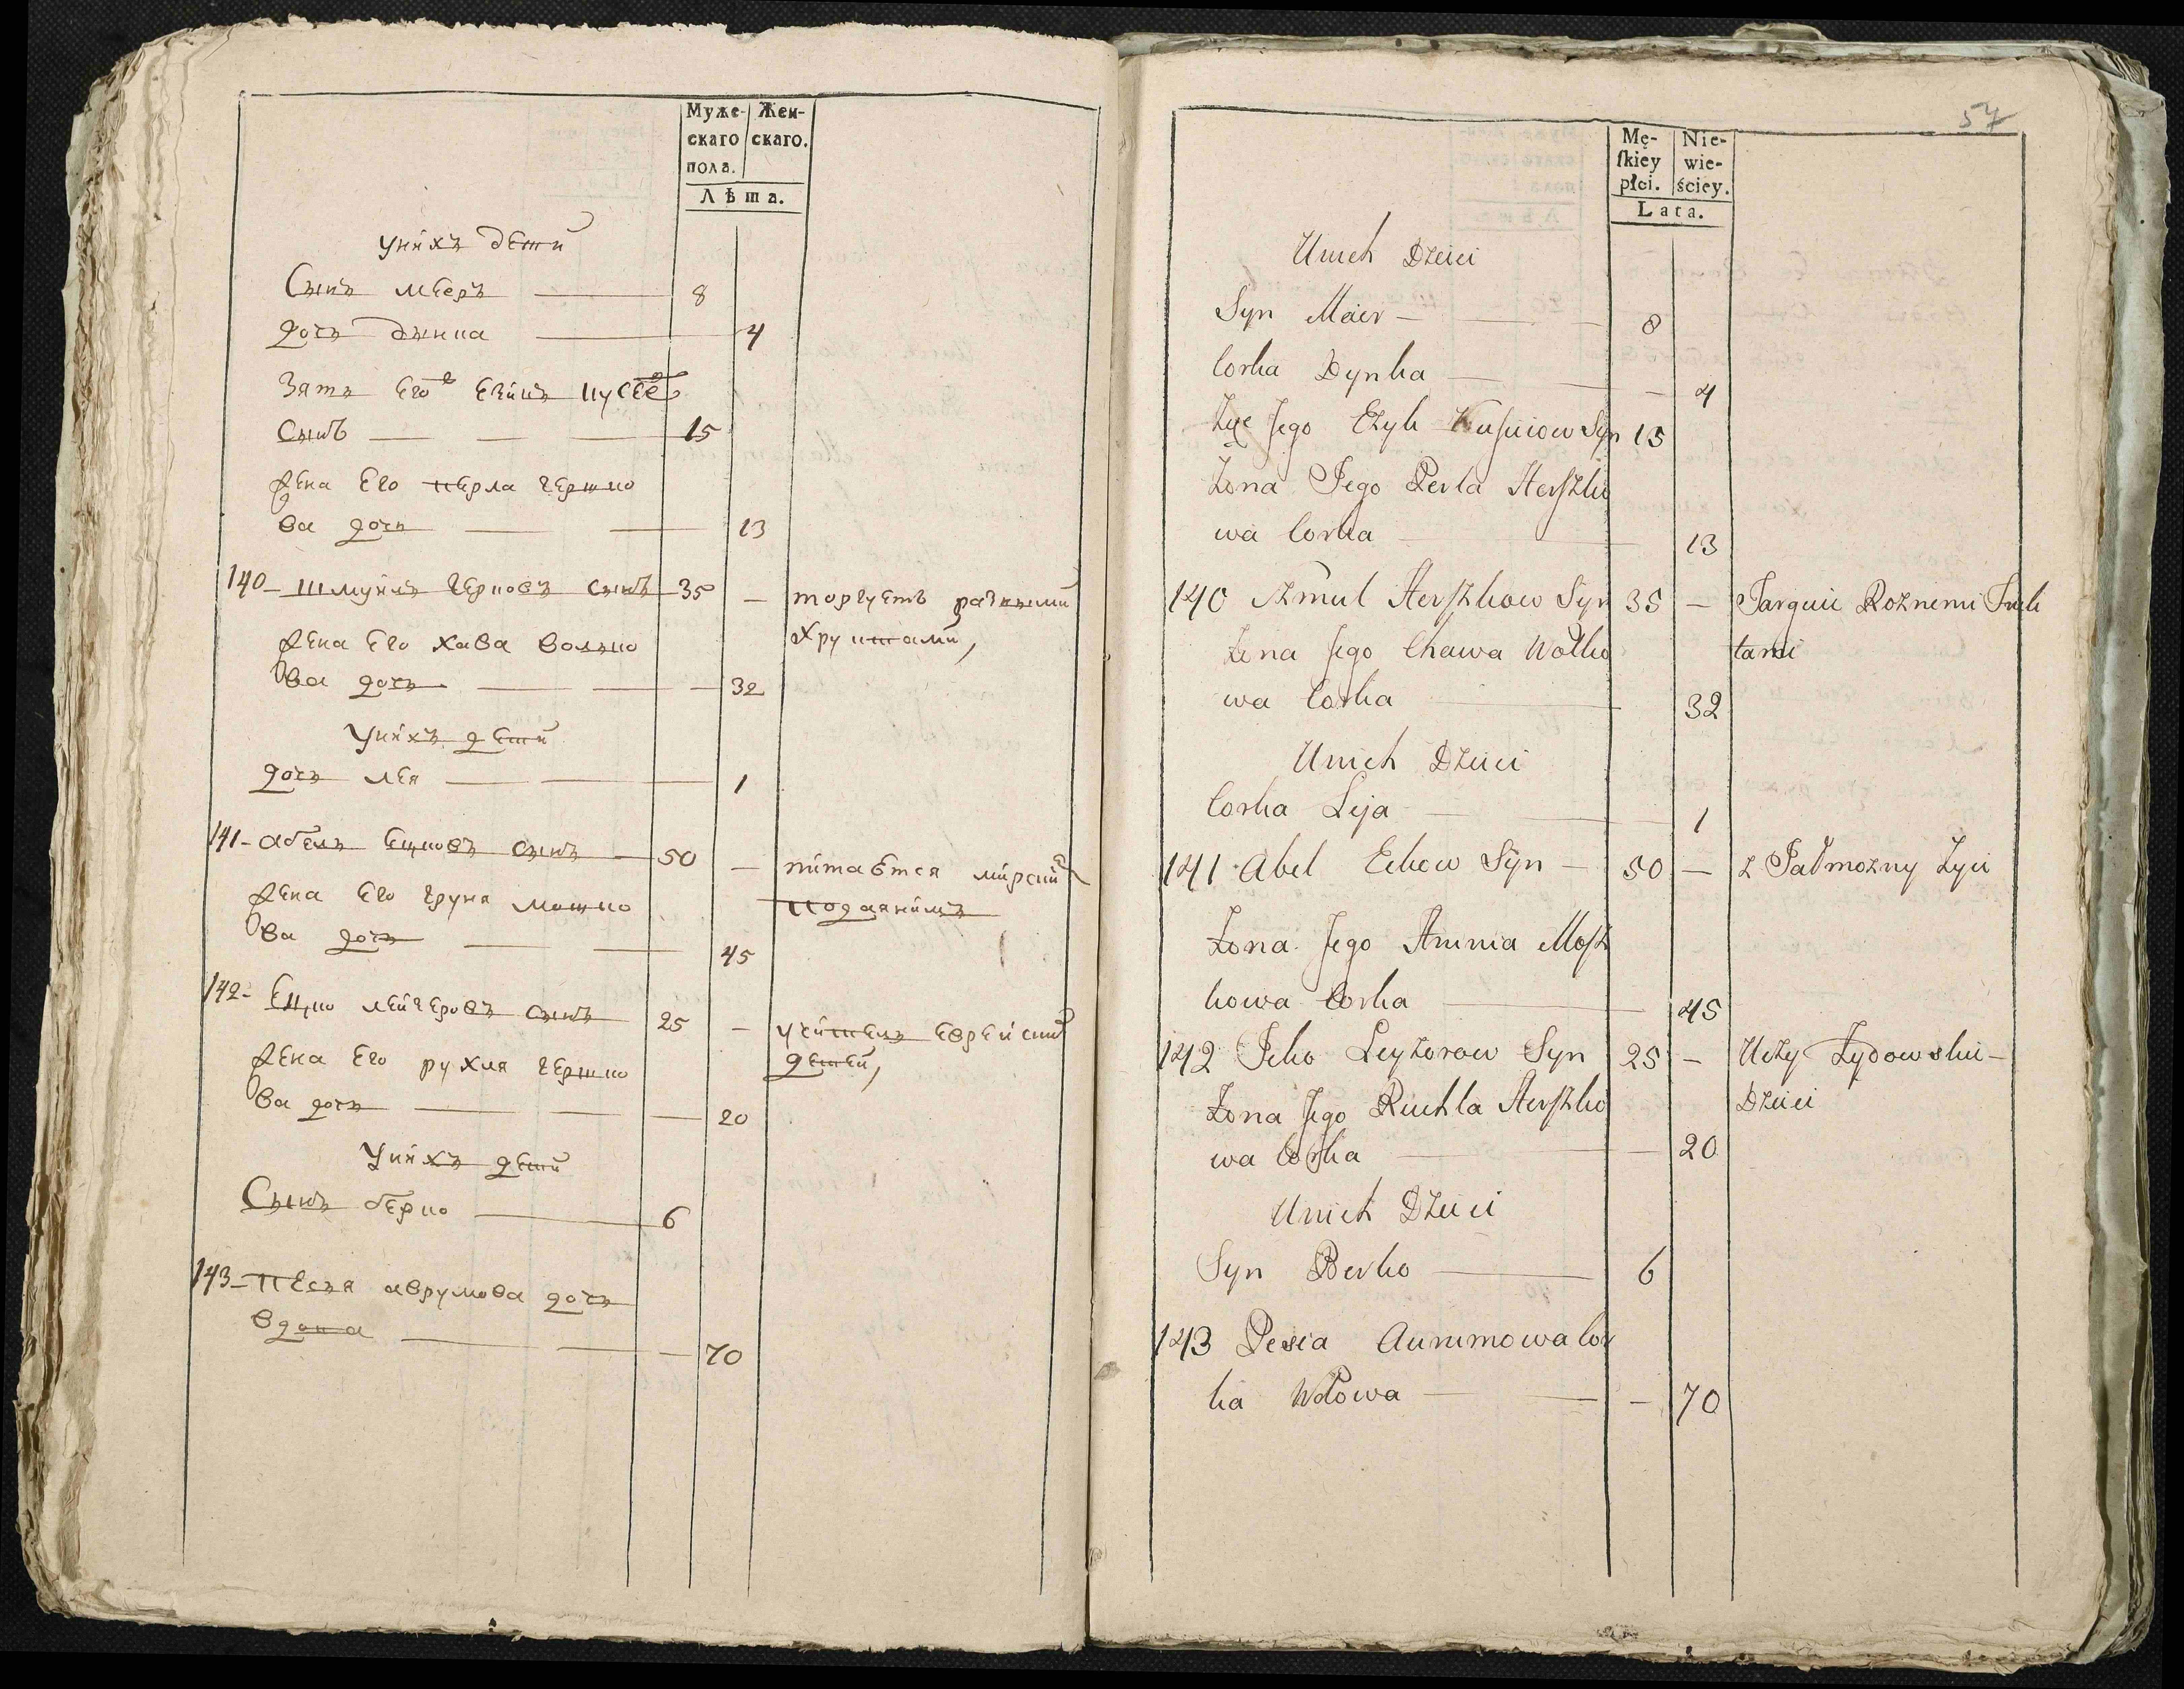 Муже-
скаго
пола.
Жен-
скаго.
Лѣта.
унихъ дети
Сынъ мееръ 8
дочь дынка 4
Зять Его Ейикъ
сынъ 15
жена Его перла гершко
ва дочь 13
140 шмуйлъ герковъ сынъ 35 — торгуетъ разными
фруктами,
жена Его хава волько
ва дочь — 32
Унихъ дети
дочь лея 1
141 абель Ецковъ сынъ 50 — питается мирским
подаянимъ
жена Его груня мошко
ва дочь 45
142 Ецко лейзеровъ сынъ 25 — учитель еврейских
детей,
жена Его рухля гершко
ва дочь — 20
Унихъ дети
Сынъ берко 6
143 песя аврумова дочь
вдова — 70
57
Mę-
ſkiey
płci.
Nie-
wie-
ściey.
Lata.
Unich Dzieci
Syn Maier — 8
Corka Dynka — 4
Zięć Jego Ezyk Kuſniow Syn 15
Żona Jego Perla Herſzko
wa Corka 13
140 Szmul Herſzkow Syn 35 — Targuie Roznemi Fruk
tami
Żona Jego Chawa Wolko
wa Corka 32
Unich Dzieci
Corka Leja — 1
141 Abel Eckow Syn — 50 — z Jałmozny Zyie
Żona Jego Hrunia Moſz
kowa Corka 45
142 Icko Leyzorow Syn 25 — Uczy Zydowskie
Dzieci
Żona Jego Ruchla Herſzko
wa Corka — 20
Unich Dzieci
Syn Berko 6
143 Pesia Aurumowa Cor
ka Wdowa — 70